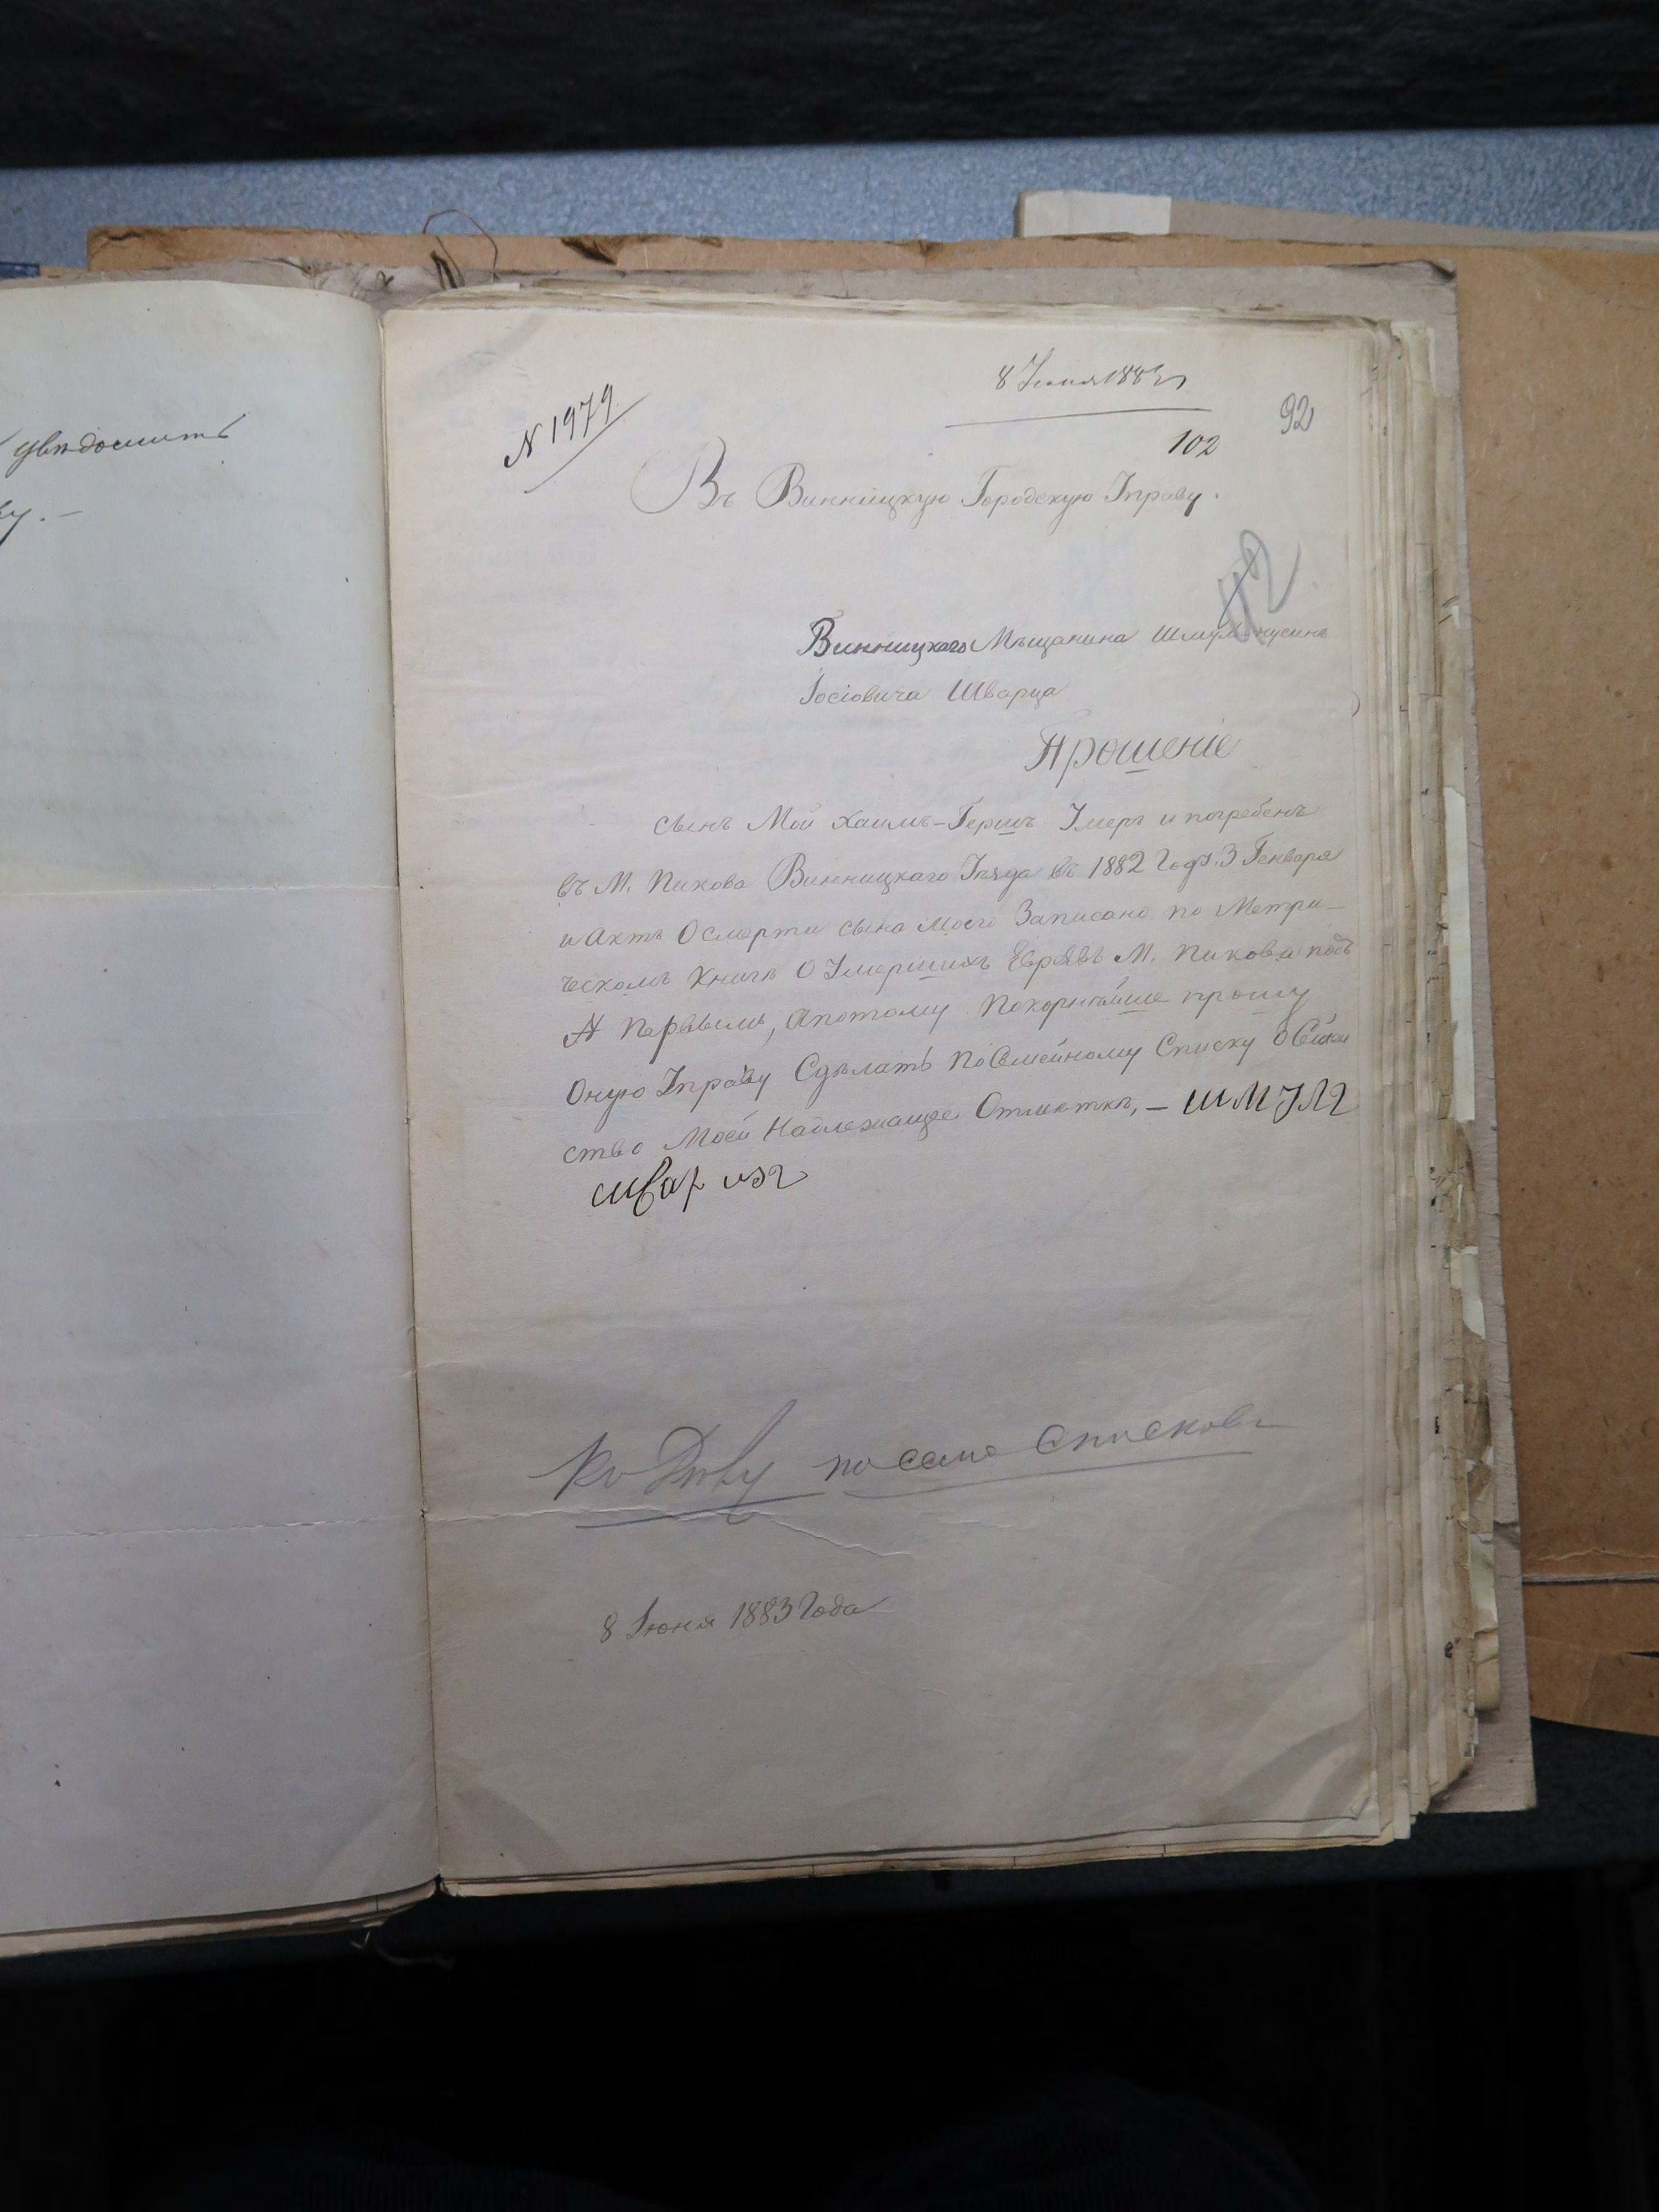 увѣдомить
8 Іюня 1883 г
92
N 1979
102
Въ Винницкую Городскую Управу.
42
Винницкаго Мѣщанина Шмуль-
Іосіовича Шварца
Прошеніе
сынъ Мой Хаимъ-Гершъ Умеръ и погребенъ
въ М. Пикова Винницкаго Уѣзда въ 1882 Году. 3 Генваря
и Актъ О смерти сына моего Записано по Метри-
ческомъ Книгѣ О Умершихъ Евреявъ М. Пикова подъ
N Первымъ, Апотому Покорнѣйше прошу
Оную Управу Сдѣлать по Семейному Списку о Семей
ство Моей Надлежаще Отметкѣ, – ШМУЛ
швар
по семе Списковъ
8 Іюня 1883 Года